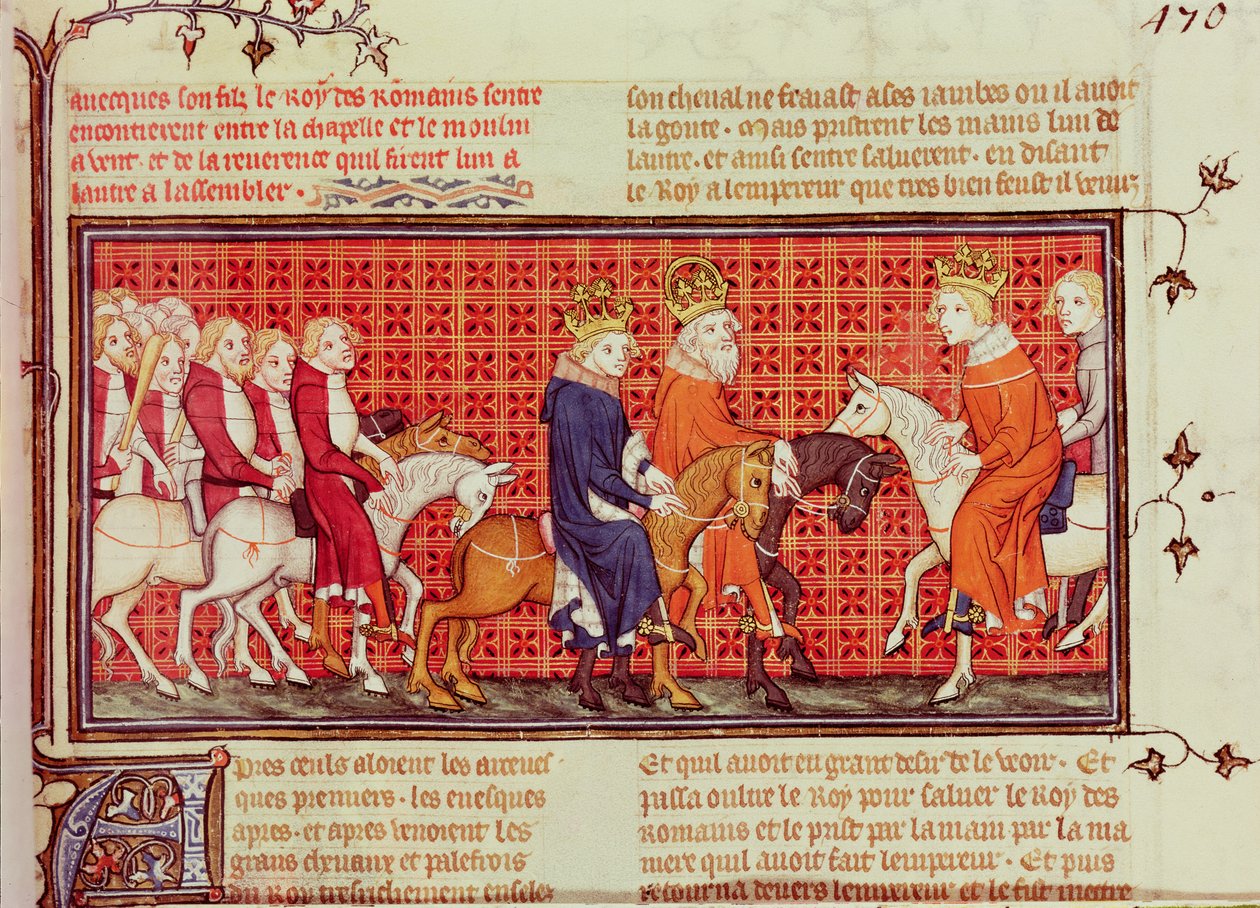 470
auecques son filz le Roy des Romains sentre
encontrerent entre la chapelle et le moulin
a vent. et de la reuerence quil firent lun a
lautre a lassembler.
son cheual ne fraiast a ses iambes ou il auoit
la goute. Mais pristrent les mains lun de
lautre. et ainsi sentre saluerent. en disant
le Roy a lempereur que tres bien feust il venuz
Apres ceuls aloient les arceues
ques premiers. les euesques
apres. et apres venoient les
grans cheuaux et palefrois
du Roy tresrichement enselez
Et quil auoit eu grant desir de le veoir. Et
passa oultre le Roy pour saluer le Roy des
Romains et le prist par la main par la ma
niere quil auoit fait lempereur. Et puis
retourna deuers lempereur et le fist mettre